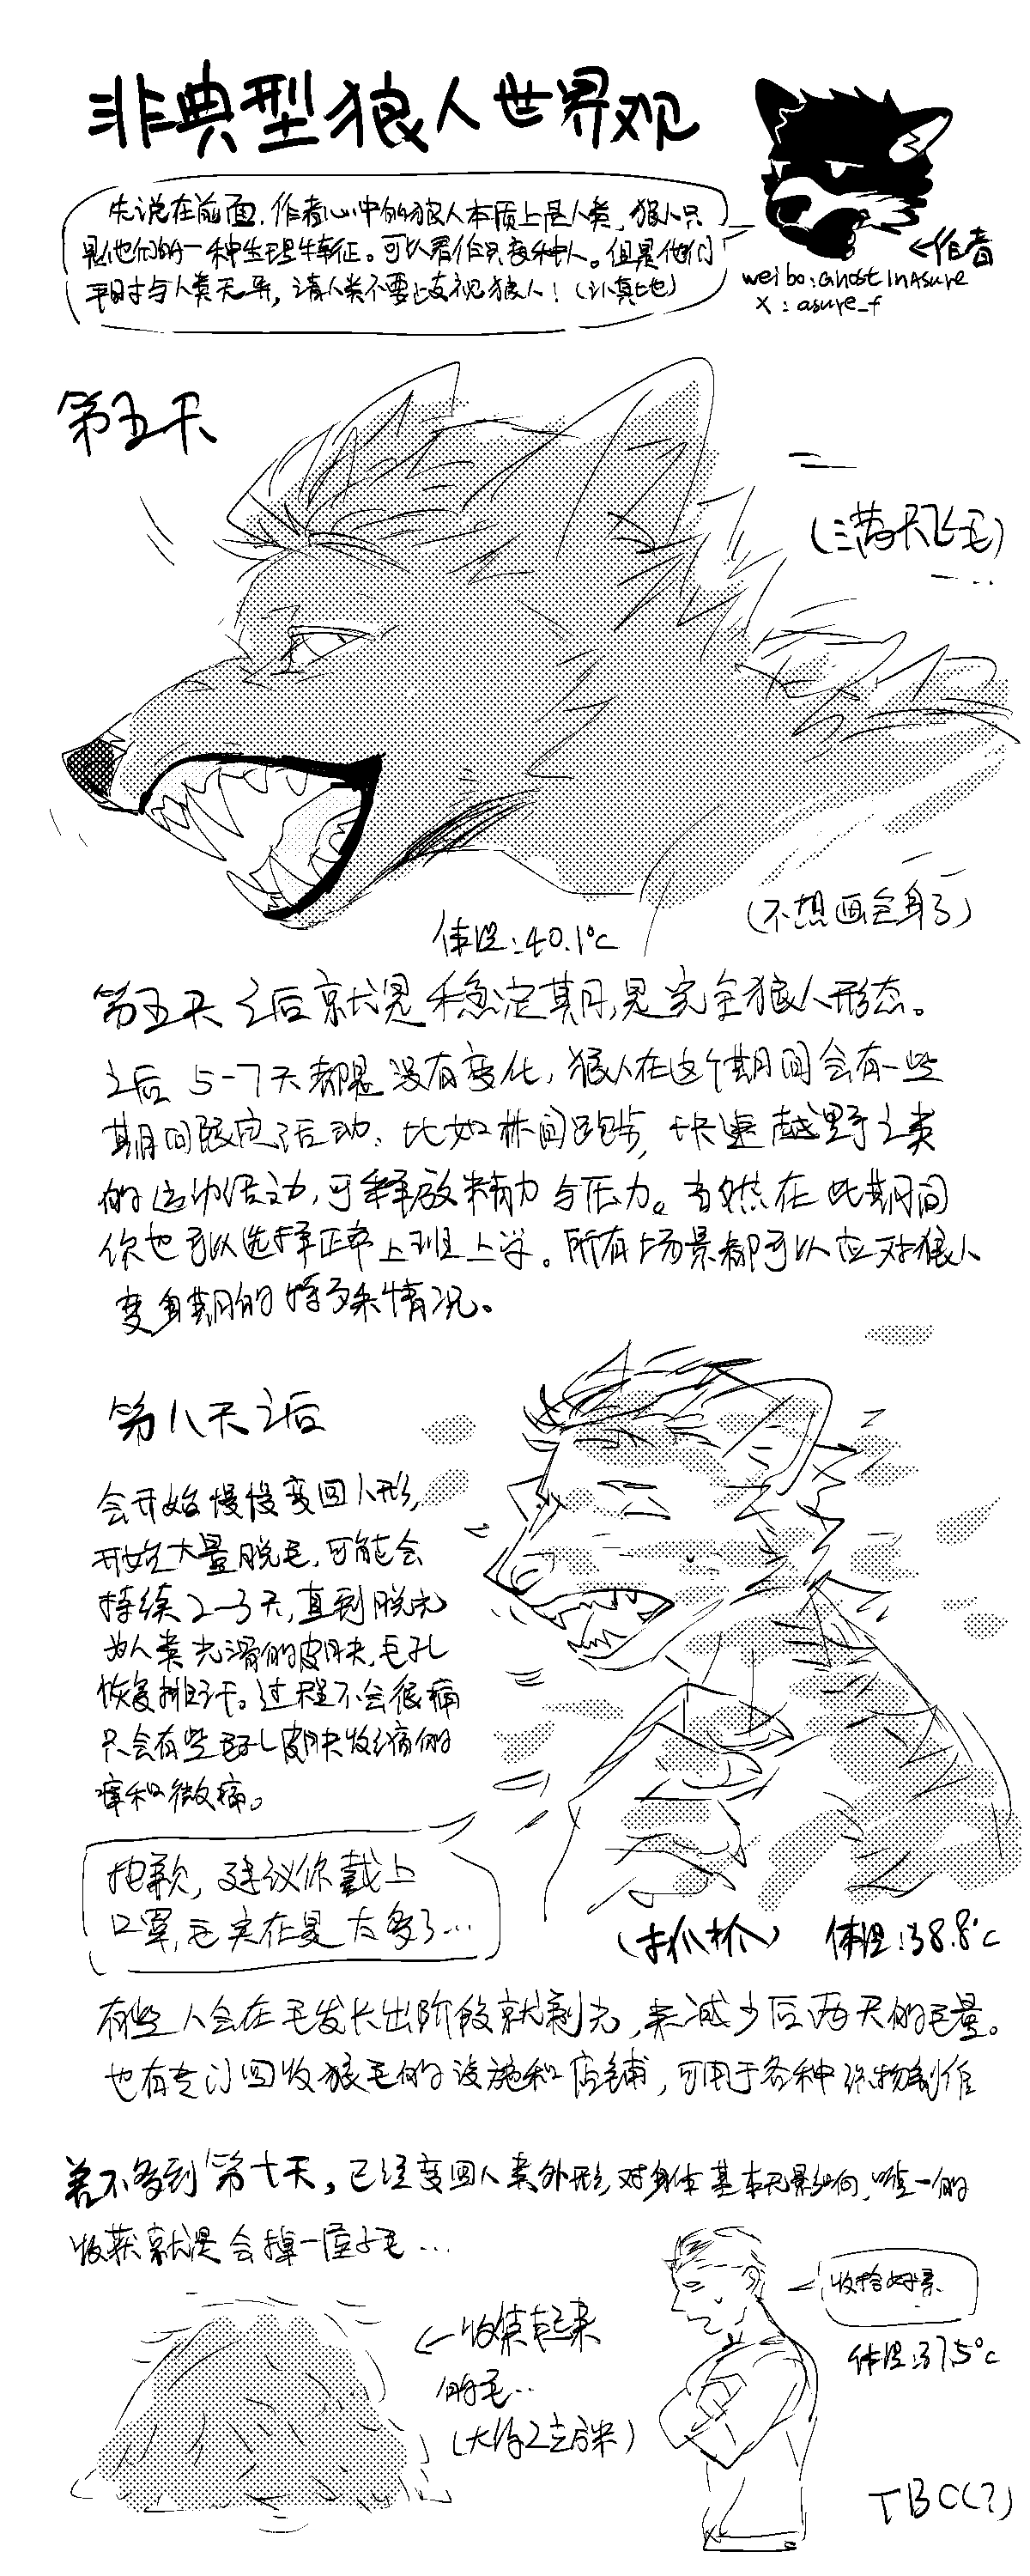 非典型狼人世界观
先说在前面,作者心中的狼人本质上是人类,狼人只
是他们的一种生理特征。可以看作只变种人。但是他们
平时与人类无异,请人类不要歧视狼人!(认真地)
←作者
weibo:GhostInAsure
X:asure_f
第五天
(满天飞毛)
(不想画全身了)
体温:40.1°C
第五天之后就是稳定期,是完全狼人形态。
之后5-7天都是没有变化,狼人在这个期间会有一些
期间限定活动,比如林间跑步,快速越野之类
的运动活动,可释放精力与压力。当然在此期间
你也可以选择正常上班上学。所有场景都可以应对狼人
变身期的特殊情况。
第八天之后
会开始慢慢变回人形,
开始大量脱毛,可能会
持续2-3天,直到脱光
为人类光滑的皮肤,毛孔
恢复排汗。过程不会很痛
只会有些毛孔皮肤收缩的
痒和微痛。
抱歉,建议你戴上
口罩,毛实在是太多了…
(抓抓) 体温:38.8°C
有些人会在毛发长出阶段就剃光,来减少后两天的毛量。
也有专门回收狼毛的设施和店铺,可用于各种织物制作
差不多到第十天,已经变回人类外形,对身体基本无影响,唯一的
收获就是会掉一屋子毛…
←收集起来
的毛…
(大约2立方米)
收拾好累
体温:37.5°C
TBC(?)